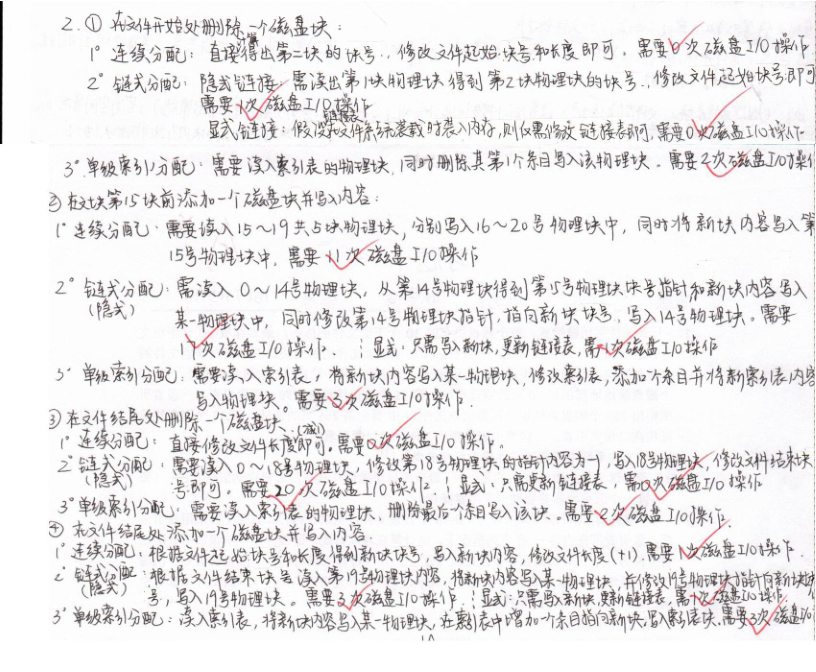 2. ① 在文件开始处删除一个磁盘块:
1° 连续分配: 直接得出第二块的块号, 修改文件起始块号和长度即可, 需要0次磁盘I/O操作
2° 链式分配: 隐式链接: 需读出第1块物理块得到第2块物理块的块号, 修改文件起始块号即可
需要1次磁盘I/O操作
显式链接: 假设链接表和文件系统装载时装入内存, 则仅需修改链接表即可, 需要0次磁盘I/O操作
3° 单级索引分配: 需要读入索引表的物理块, 同时删除其第1个条目写入该物理块。需要2次磁盘I/O操作
② 在文块第15块前添加一个磁盘块并写入内容:
1° 连续分配: 需要读入15~19共5块物理块, 分别写入16~20号物理块中, 同时将新块内容写入第
15号物理块中, 需要11次磁盘I/O操作
2° 链式分配: 需读入0~14号物理块, 从第14号物理块得到第15号物理块块号指针和新块内容写入
(隐式) 某一物理块中, 同时修改第14号物理块指针, 指向新块块号, 写入14号物理块。需要
17次磁盘I/O操作. ¦ 显式: 只需写入新块, 更新链接表, 需1次磁盘I/O操作
3° 单级索引分配: 需要读入索引表, 将新块内容写入某一物理块, 修改索引表, 添加一个条目并将新索引表内容
写入物理块。需要3次磁盘I/O操作.
③ 在文件结尾处删除一个磁盘块.
1° 连续分配: 直接修改文件长度(减1)即可。需要0次磁盘I/O操作。
2° 链式分配: 需要读入0~18号物理块, 修改第18号物理块的指针内容为-1, 写入18号物理块, 修改文件结束块
(隐式) 号即可, 需要20次磁盘I/O操作. ¦ 显式: 只需更新链接表, 需0次磁盘I/O操作
3° 单级索引分配: 需要读入索引表的物理块, 删除最后一个条目写入该块。需要2次磁盘I/O操作.
④ 在文件结尾处添加一个磁盘块并写入内容.
1° 连续分配: 根据文件起始块号和长度得到新块块号, 写入新块内容, 修改文件长度(+1). 需要1次磁盘I/O操作.
2° 链式分配: 根据文件结束块号读入第19号物理块内容, 将新块内容写入某一物理块, 并修改19号物理块指针向新块块
(隐式) 号, 写入19号物理块。需要3次磁盘I/O操作. ¦ 显式: 只需写入新块, 更新链接表, 需1次磁盘I/O操作.
3° 单级索引分配: 读入索引表, 将新块内容写入某一物理块, 在索引表中增加一个条目指向新块, 写入索引表块. 需要3次磁盘I/O